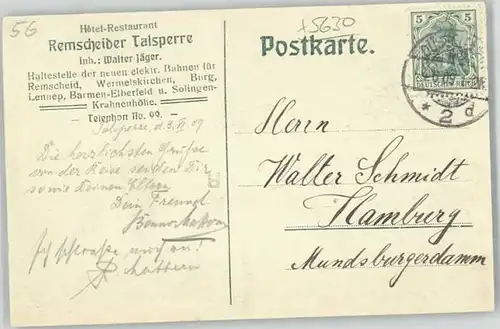 56
Hôtel-Restaurant
Remscheider Talsperre
Inh.: Walter Jäger.
Haltestelle der neuen elektr. Bahnen für
Remscheid, Wermelskirchen, Burg,
Lennep, Barmen-Elberfeld u. Solingen-
Krahnenhöhe.
— Telephon No. 99. —
Talsperre, d. 3. VI 09
Die herzlichsten Grüße
von der Reise senden Dir
sowie Deinen Eltern
Dein Freund
Ich schließe mich an!
+5630
Postkarte.
5 5
DEUTSCHES REICH
* 2 d
Herrn
Walter Schmidt
Hamburg
Mundsburgerdamm